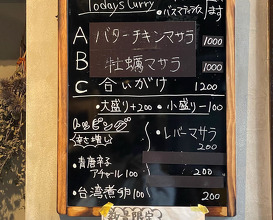 Todays Curry
・バスマティライス
ます
A バターチキンマサラ 1000
B 牡蠣マサラ 1000
C 合いがけ 1200
・大盛り+200 ・小盛り-100
トッピング
・レバーマサラ
200
・青唐辛子
アチャール 100
200
・台湾煮卵 100
200